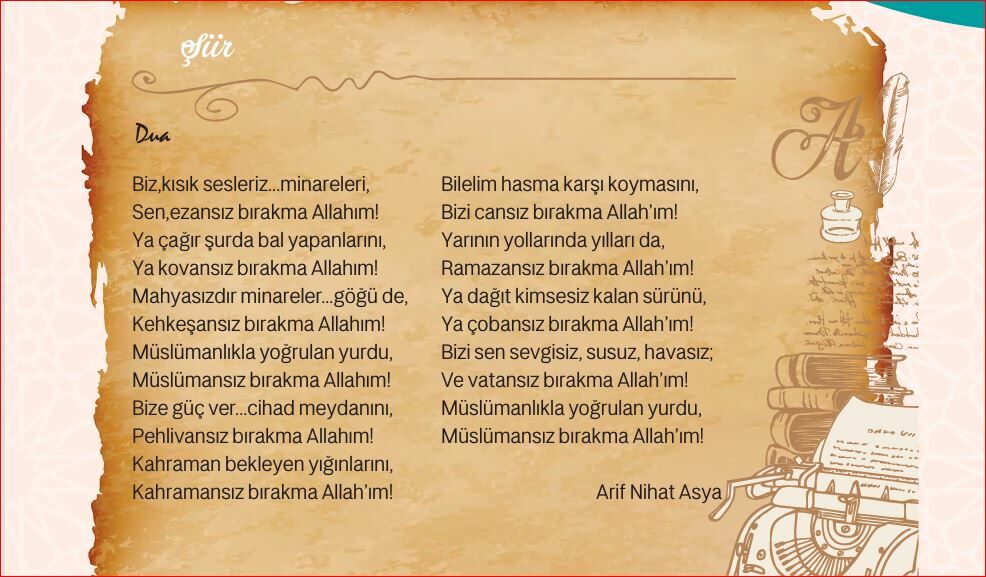 Şiir
Dua
Biz,kısık sesleriz...minareleri,
Sen,ezansız bırakma Allahım!
Ya çağır şurda bal yapanlarını,
Ya kovansız bırakma Allahım!
Mahyasızdır minareler...göğü de,
Kehkeşansız bırakma Allahım!
Müslümanlıkla yoğrulan yurdu,
Müslümansız bırakma Allahım!
Bize güç ver...cihad meydanını,
Pehlivansız bırakma Allahım!
Kahraman bekleyen yığınlarını,
Kahramansız bırakma Allah’ım!
Bilelim hasma karşı koymasını,
Bizi cansız bırakma Allah’ım!
Yarının yollarında yılları da,
Ramazansız bırakma Allah’ım!
Ya dağıt kimsesiz kalan sürünü,
Ya çobansız bırakma Allah’ım!
Bizi sen sevgisiz, susuz, havasız;
Ve vatansız bırakma Allah’ım!
Müslümanlıkla yoğrulan yurdu,
Müslümansız bırakma Allah’ım!
Arif Nihat Asya
A